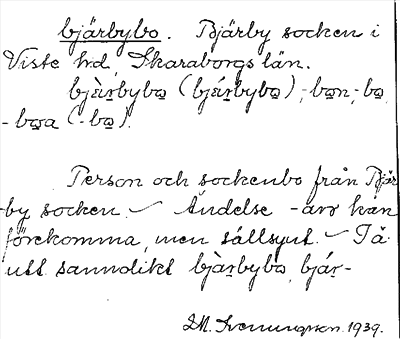 bjärbybo. Bjärby socken i
Viste hd, Skaraborgs län.
bjä̀rbybo (bjä́rbybo), -bon, -bo,
-boa (-bo).
Person och sockenbo från Bjär-
by socken. – Ändelse -are kan
förekomma, men sällsynt. –
utt. sanndikt bjä̀rbybo, bjä́r-
1939.